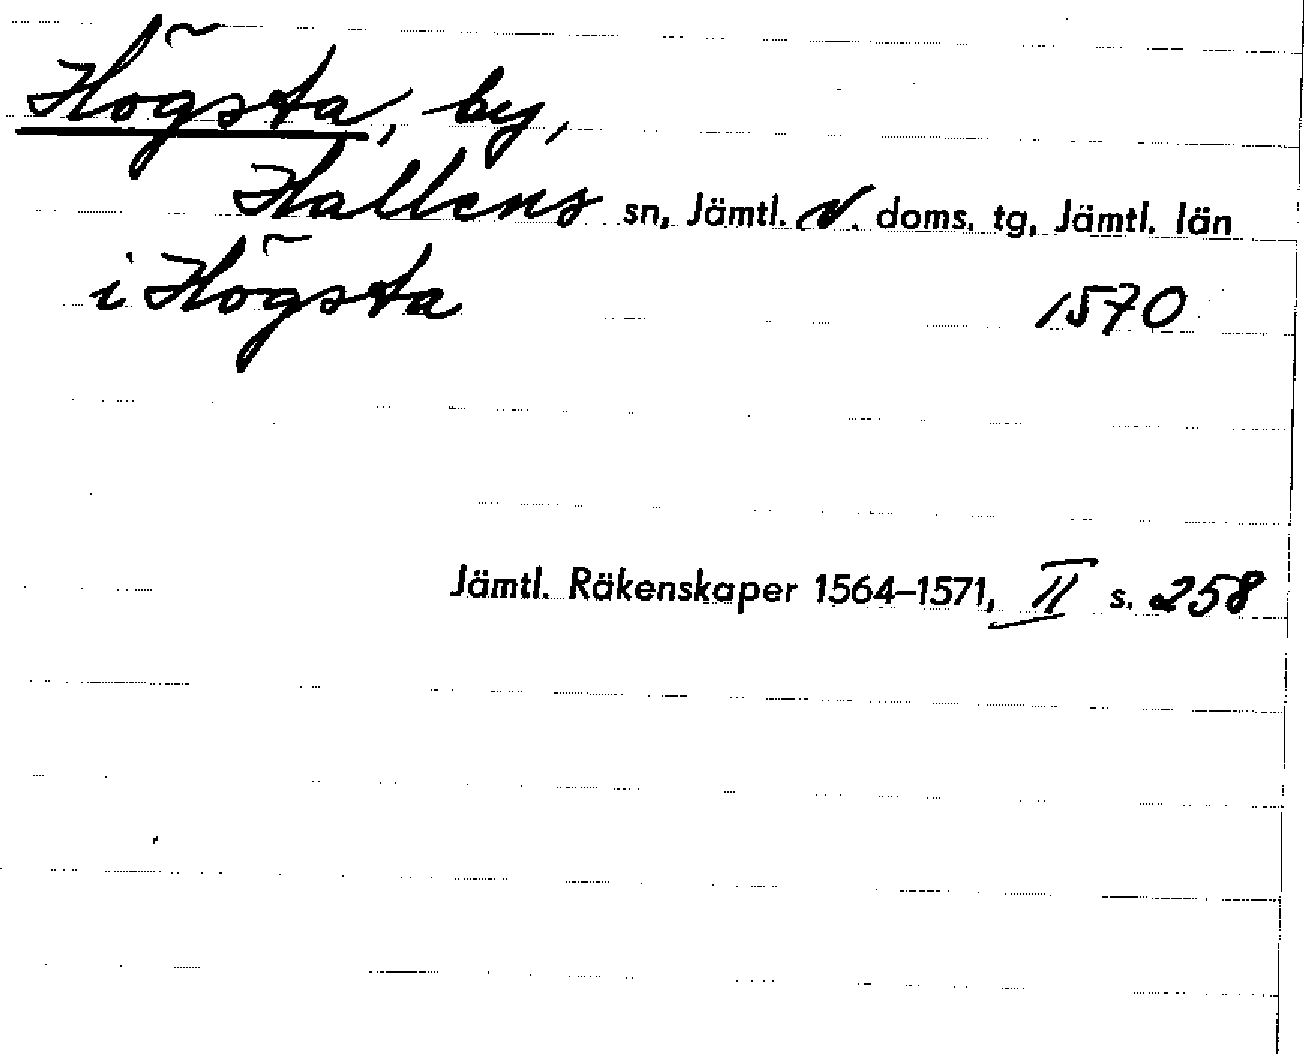 Högsta, by,
Hallens sn, Jämtl. V. doms. tg, Jämtl. län
i Högsta 1570
Jämtl. Räkenskaper 1564–1571, II s. 258